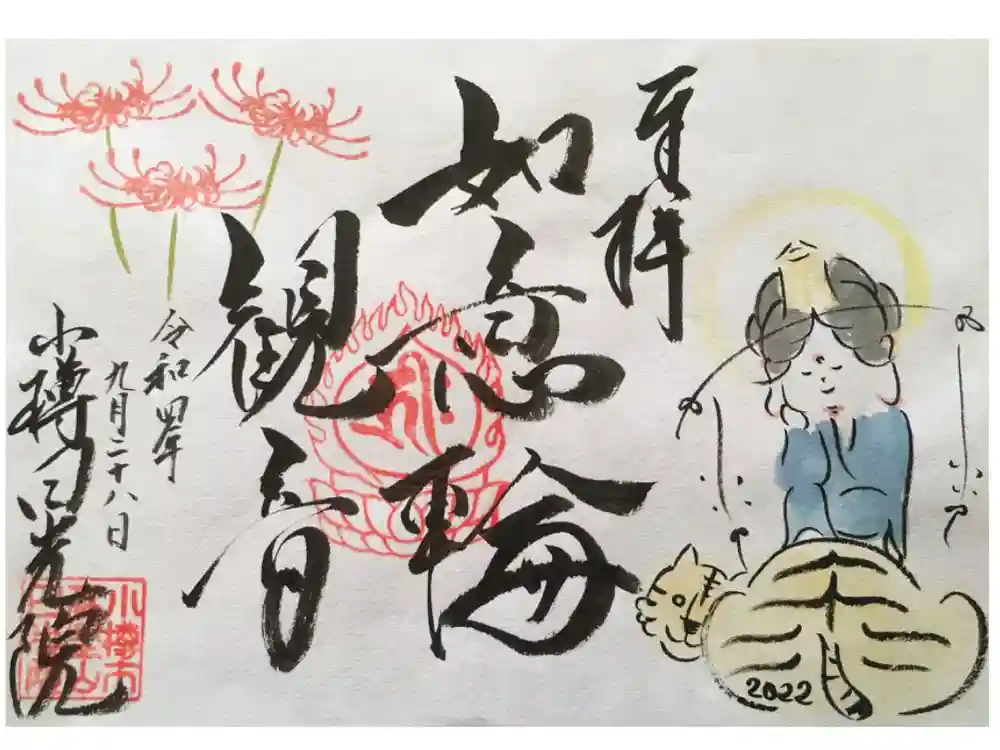 拝
如意輪
観音
令和四年
九月二十八日
小樽日光院
小樽市
2022